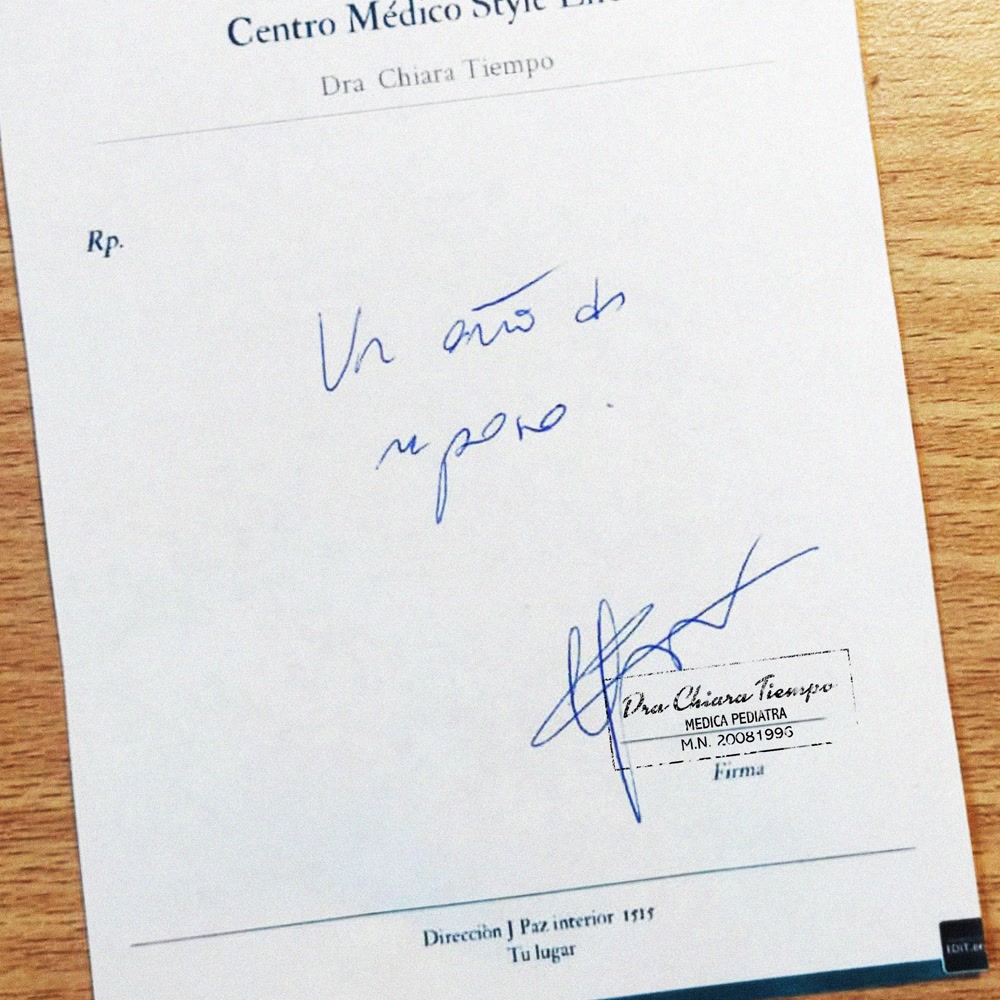 Centro Médico Style
Dra Chiara Tiempo
Rp.
Un año de
reposo.
Dra Chiara Tiempo
MEDICA PEDIATRA
M.N. 20081996
Firma
Direcciòn J Paz interior 1515
Tu lugar